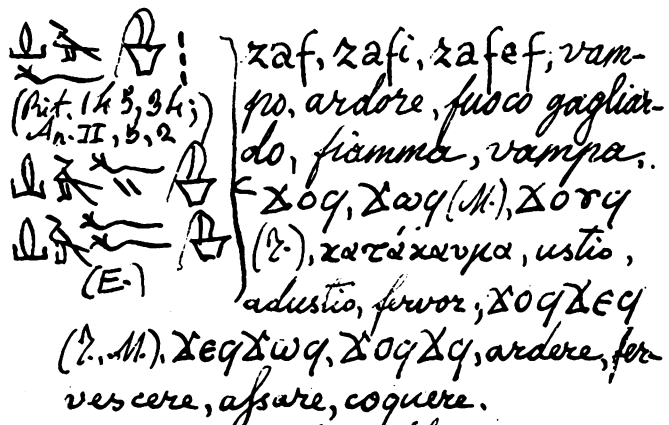 (Rit. 145, 34;
An. II, 5, 2)
(E.)
zaf, zafi, zafef, vam-
po, ardore, fuoco gagliar-
do, fiamma, vampa,.
ϫⲟϥ, ϫⲱϥ (M.), ϫⲟⲩϥ
(T.), κατάκαυμα, ustio,
adustio, fervor; ϫⲟϥϫⲉϥ
(T., M.), ϫⲉϥϫⲱϥ, ϫⲟϥϫϥ, ardere, fer-
vescere, assare, coquere.